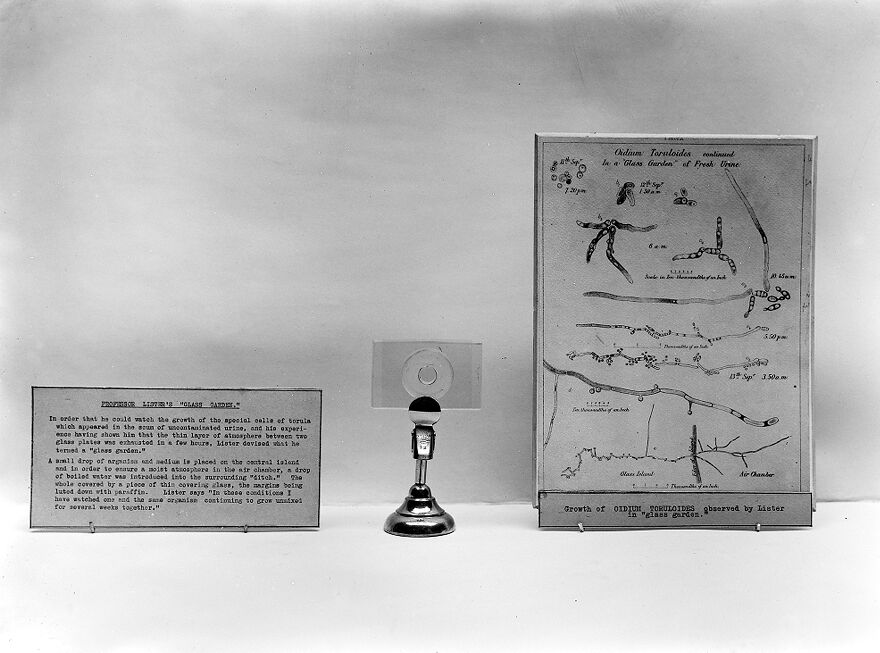 PROFESSOR LISTER'S "GLASS GARDEN."
In order that he could watch the growth of the special cells of torula
which appeared in the scum of uncontaminated urine, and his experi-
ence having shown him that the thin layer of atmosphere between two
glass plates was exhausted in a few hours, Lister devised what he
termed a "glass garden."
A small drop of organism and medium is placed on the central island
and in order to ensure a moist atmosphere in the air chamber, a drop
of boiled water was introduced into the surrounding "ditch." The
whole covered by a piece of thin covering glass, the margins being
luted down with paraffin. Lister says "In these conditions I
have watched one and the same organism continuing to grow unmixed
for several weeks together."
Oidium Toruloides continued
In a "Glass Garden" of Fresh Urine
11th Sepr.
7.20 p.m.
12th Sepr.
1.30 a.m.
6 a.m.
Scale in ten thousandths of an Inch
10.45 a.m.
5.50 p.m.
Thousandths of an Inch
13th Sepr. 3.50 a.m.
Ten thousandths of an Inch
Glass Island
Air Chamber
Thousandths of an Inch
Growth of OIDIUM TORULOIDES observed by Lister
in "glass garden."